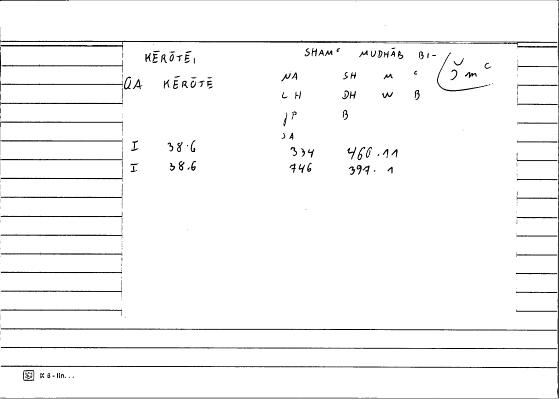 KĒRŌTĒI SHAMᶜ MUDHĀB BI-
QA KĒRŌTĒ NA SH M ᶜ
LH DH W B
JP B
JA
I 38.6 334 460.11
I 38.6 446 397. 1
IX 6 - lin...